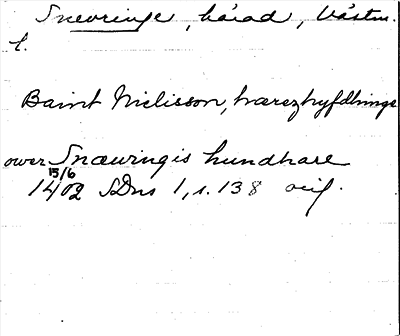 Snevringe, härad, Västm.
l.
Baint Niclisson, hærezhyfdhinge
ower Snæwingis hundhare
15/6
1402 SDns 1, s. 138 orig.